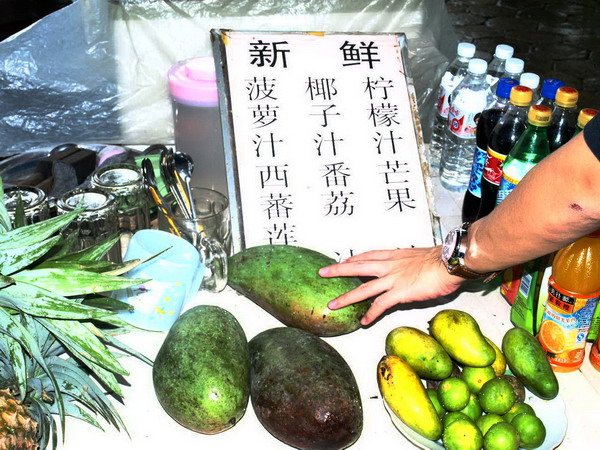 新鲜
菠萝汁西蕃莲
椰子汁番荔
柠檬汁芒果